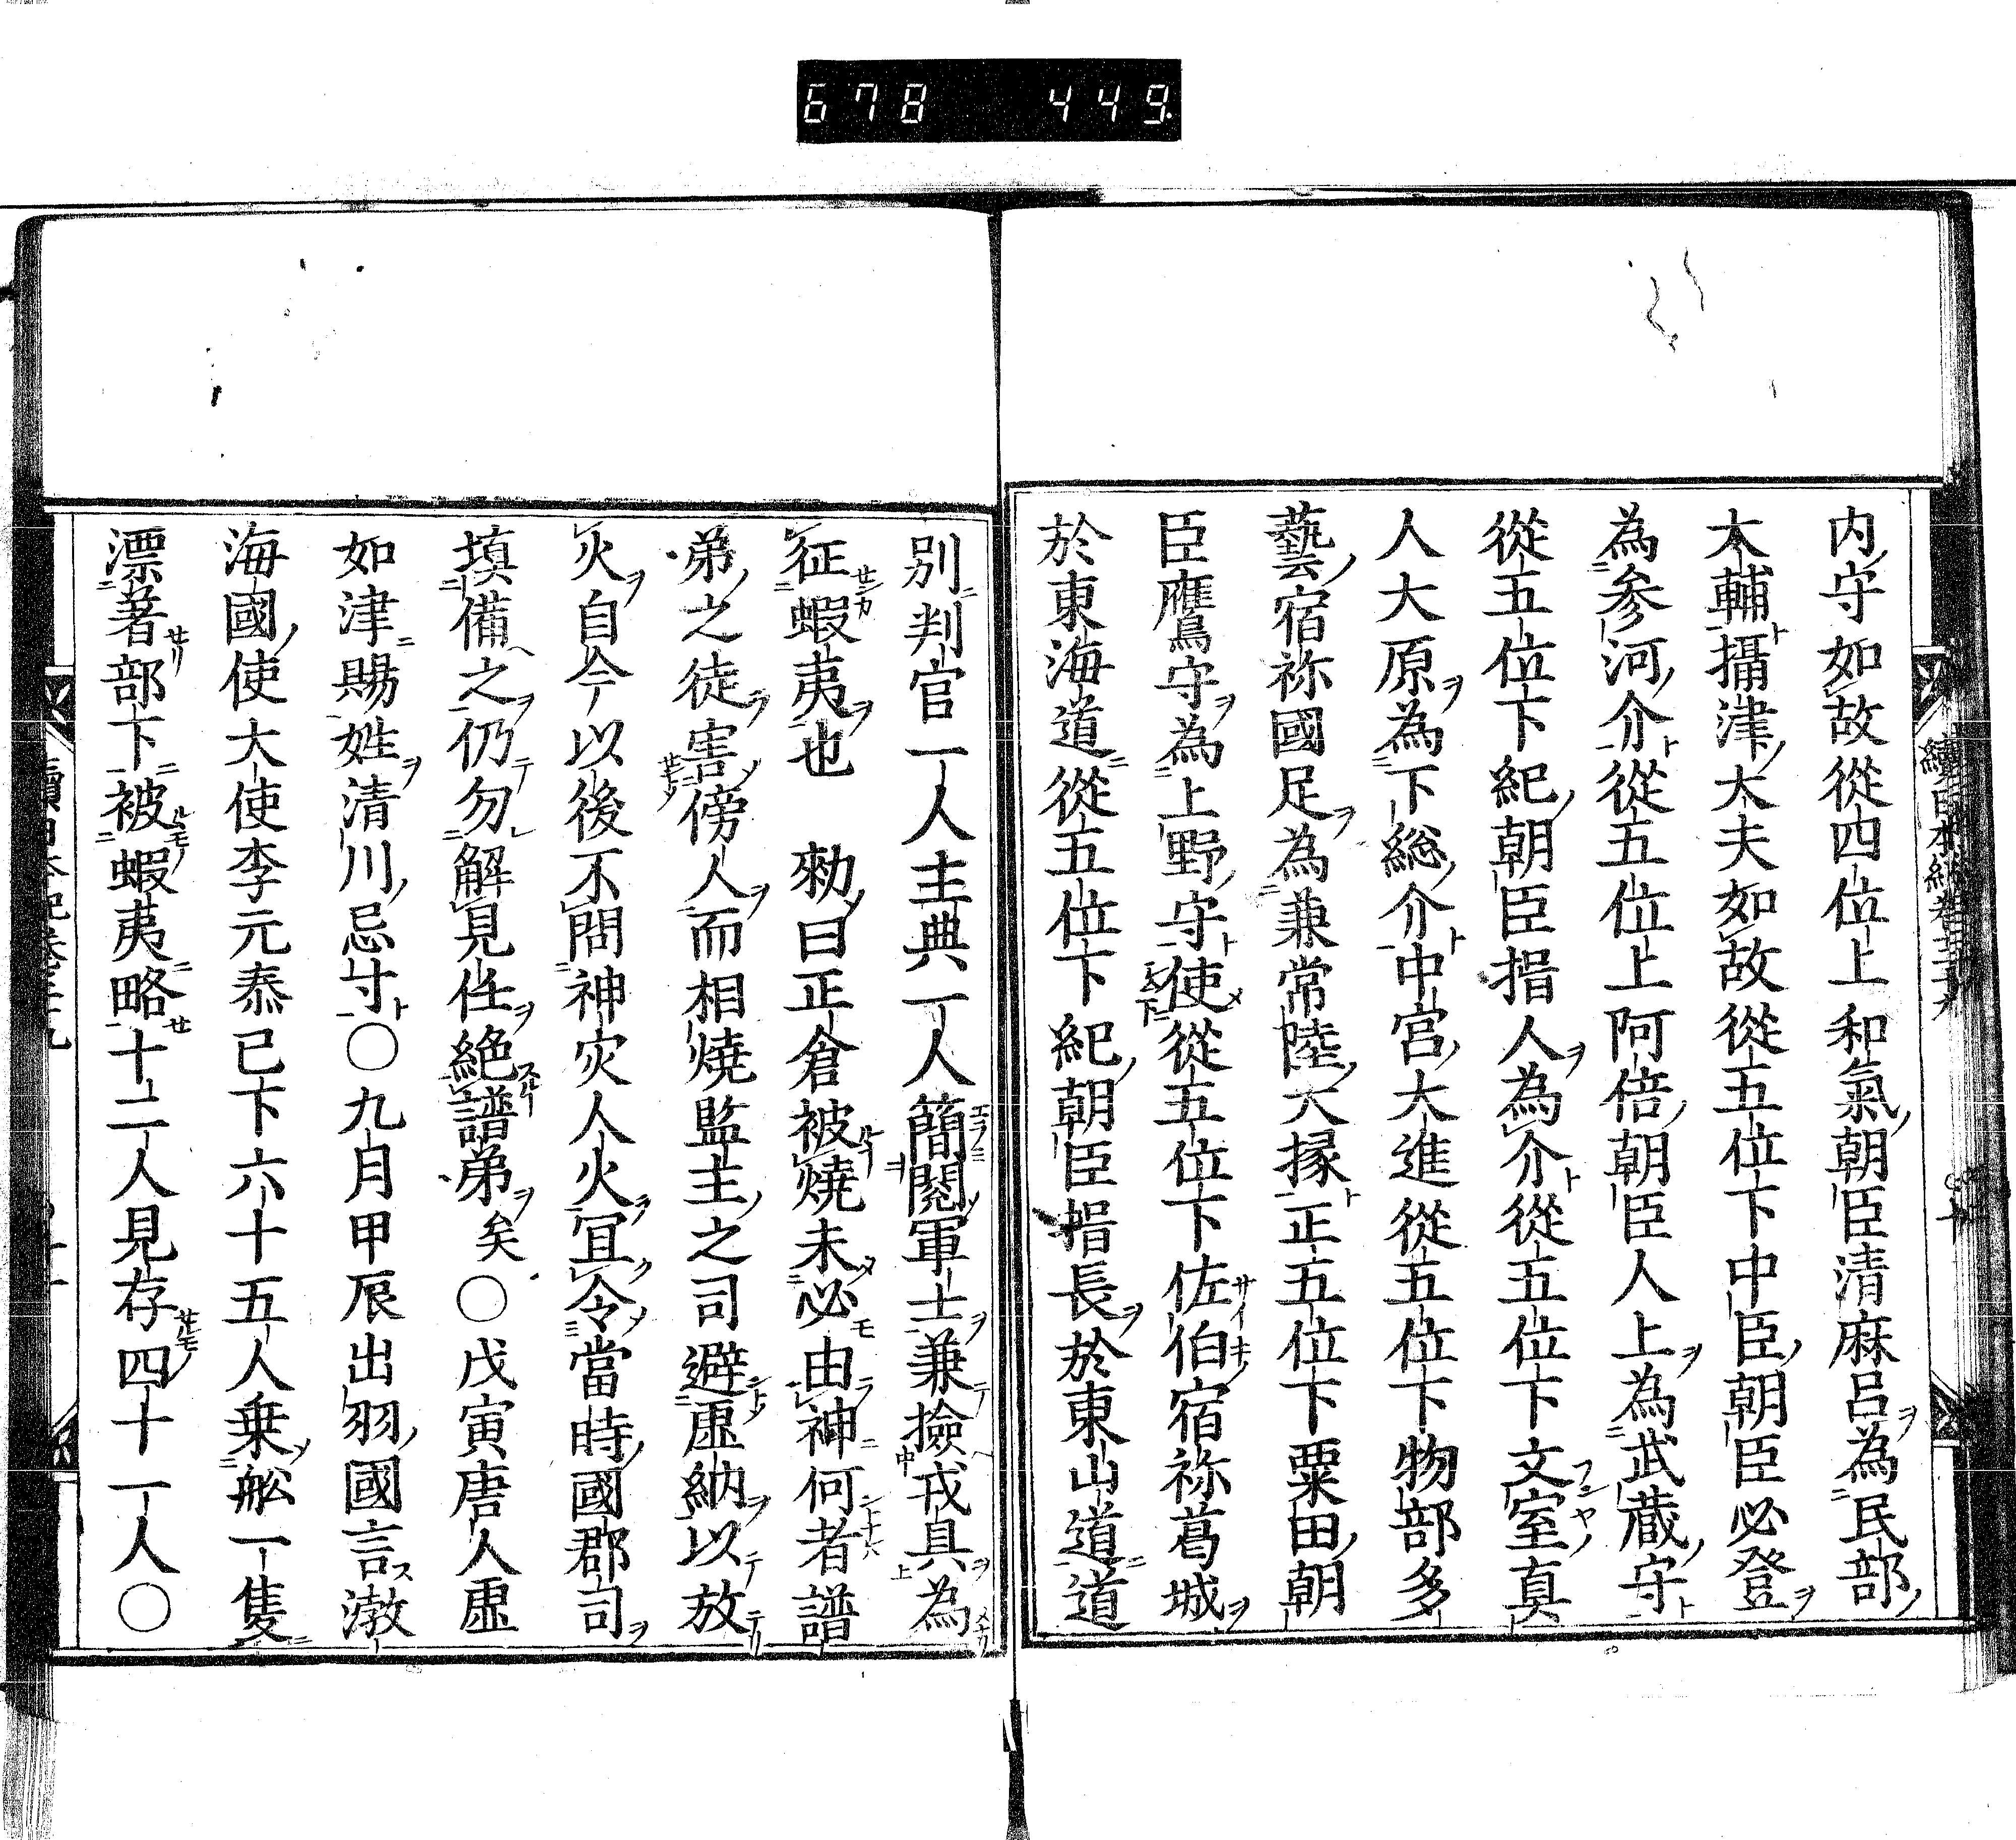 678 449
内守如故從四位上和氣朝臣清麻呂為民部
大輔攝津大夫如故從五位下中臣朝臣必登
為参河介從五位上阿倍朝臣人上為武蔵守
從五位下紀朝臣揩人為介從五位下文室真
人大原為下総介中宮大進從五位下物部多
藝宿祢國足為兼常陸大掾正五位下粟田朝
臣鷹守為上野守使從五位下佐伯宿祢葛城
於東海道從五位下紀朝臣揩長於東山道道
別判官一人主典一人簡閱軍士兼撿戎具為
征蝦夷也 勑曰正倉被燒未必由神何者譜
弟之徒害傍人而相燒監主之司避虛納以放
火自今以後不問神灾人火冝令當時國郡司
填備之仍勿解見任絶譜弟矣〇戊寅唐人盧
如津賜姓清川忌寸〇九月甲辰出羽國言渤
海國使大使李元泰已下六十五人乗舩一隻
漂著部下被蝦夷略十二人見存四十一人〇